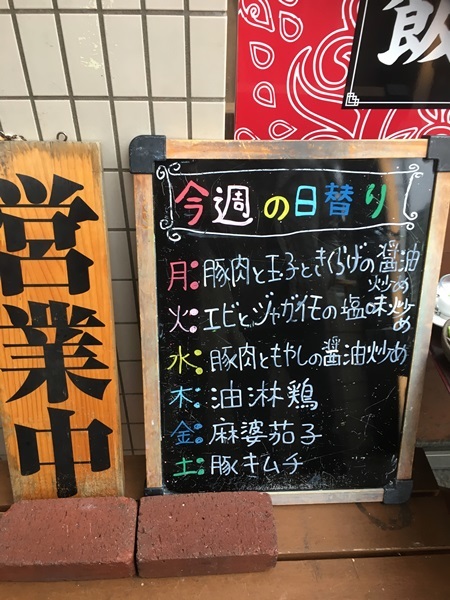 飯
営業中
今週の日替り
月:豚肉と玉子ときくらげの醤油炒め
火:エビとジャガイモの塩味炒め
水:豚肉ともやしの醤油炒め
木:油淋鶏
金:麻婆茄子
土:豚キムチ